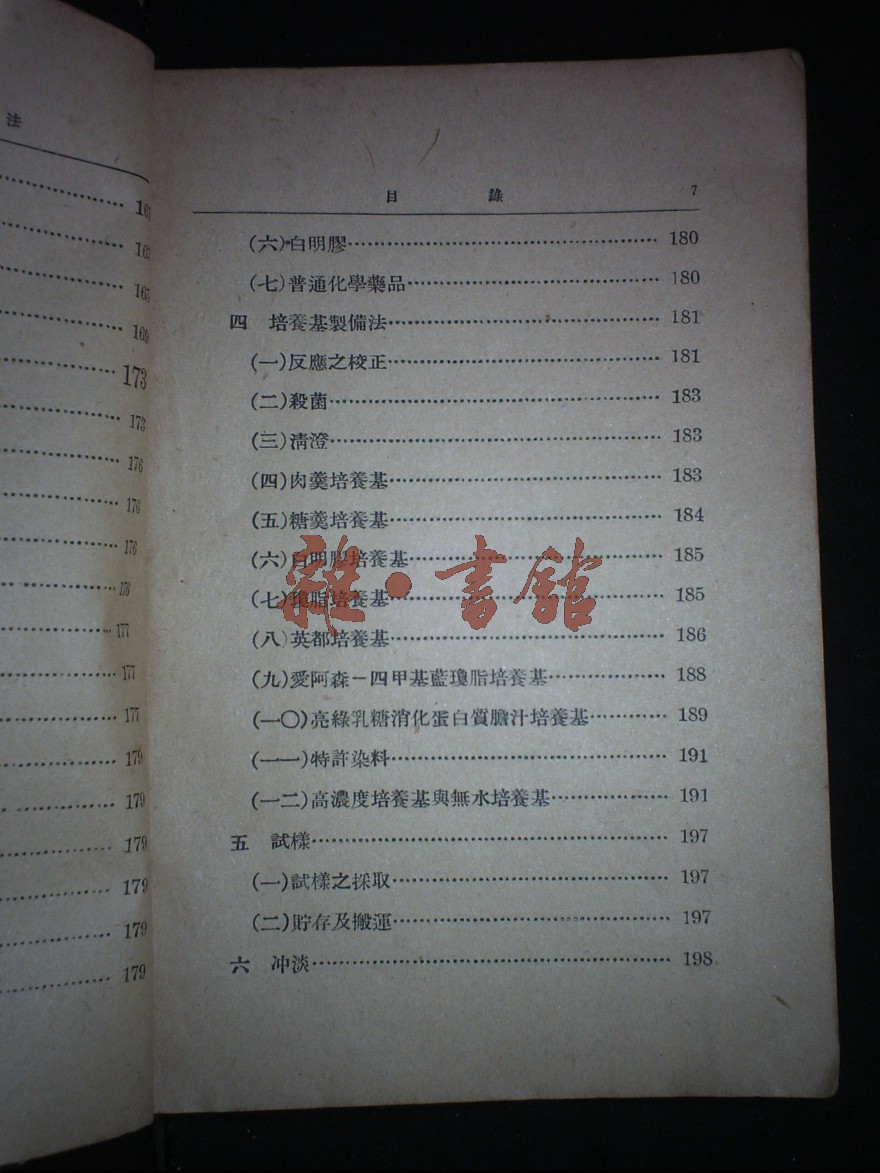 法
167
163
165
169
173
173
176
176
176
176
177
177
177
179
179
179
179
179
179
目錄 7
(六)白明膠 180
(七)普通化學藥品 180
四 培養基製備法 181
(一)反應之校正 181
(二)殺菌 183
(三)清澄 183
(四)肉羹培養基 183
(五)糖羹培養基 184
(六)白明膠培養基 185
(七)瓊脂培養基 185
(八)英都培養基 186
(九)愛阿森－四甲基藍瓊脂培養基 188
(一〇)亮綠乳糖消化蛋白質膽汁培養基 189
(一一)特許染料 191
(一二)高濃度培養基與無水培養基 191
五 試樣 197
(一)試樣之採取 197
(二)貯存及搬運 197
六 冲淡 198
雜·書館